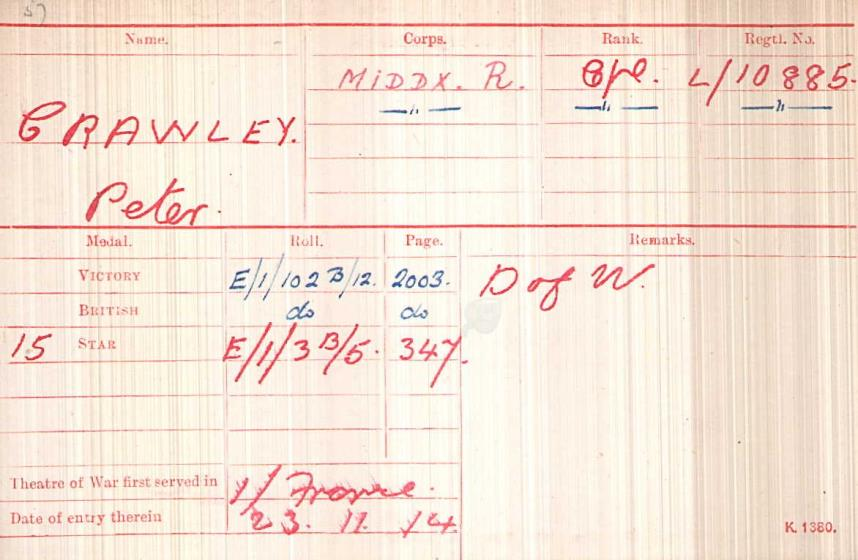 Name. Corps. Rank. Regtl. No.
MIDDX. R. Cpl. L/10885.
—"— —"— —"—
CRAWLEY.
Peter.
Medal. Roll. Page. Remarks.
VICTORY E/1/102 B/12. 2003. D of W.
BRITISH do do
15 STAR E/1/3 B/5. 347.
Theatre of War first served in 1/ France.
Date of entry therein 23. 11. 14.
K. 1380.